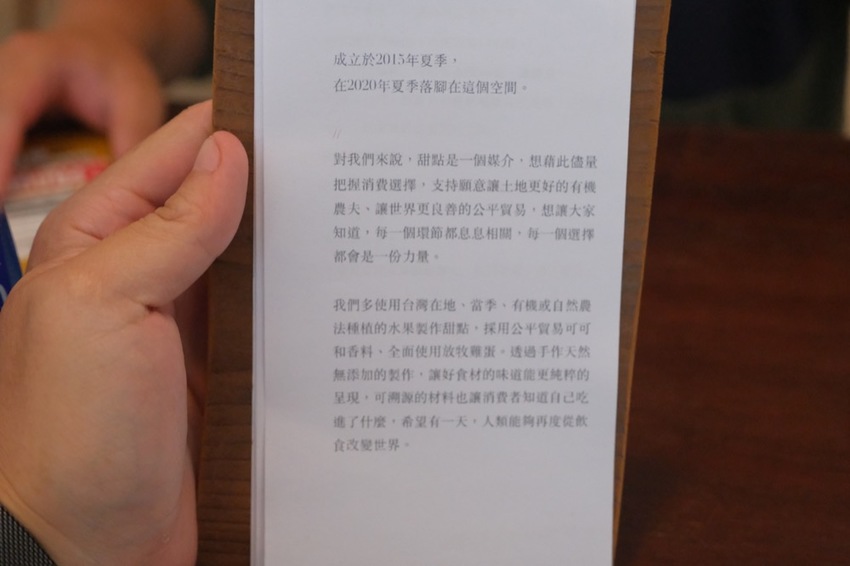 成立於2015年夏季，
在2020年夏季落腳在這個空間。
//
對我們來說，甜點是一個媒介，想藉此儘量
把握消費選擇，支持願意讓土地更好的有機
農夫、讓世界更良善的公平貿易，想讓大家
知道，每一個環節都息息相關，每一個選擇
都會是一份力量。
我們多使用台灣在地、當季、有機或自然農
法種植的水果製作甜點，採用公平貿易可可
和香料、全面使用放牧雞蛋。透過手作天然
無添加的製作，讓好食材的味道能更純粹的
呈現，可溯源的材料也讓消費者知道自己吃
進了什麼，希望有一天，人類能夠再度從飲
食改變世界。